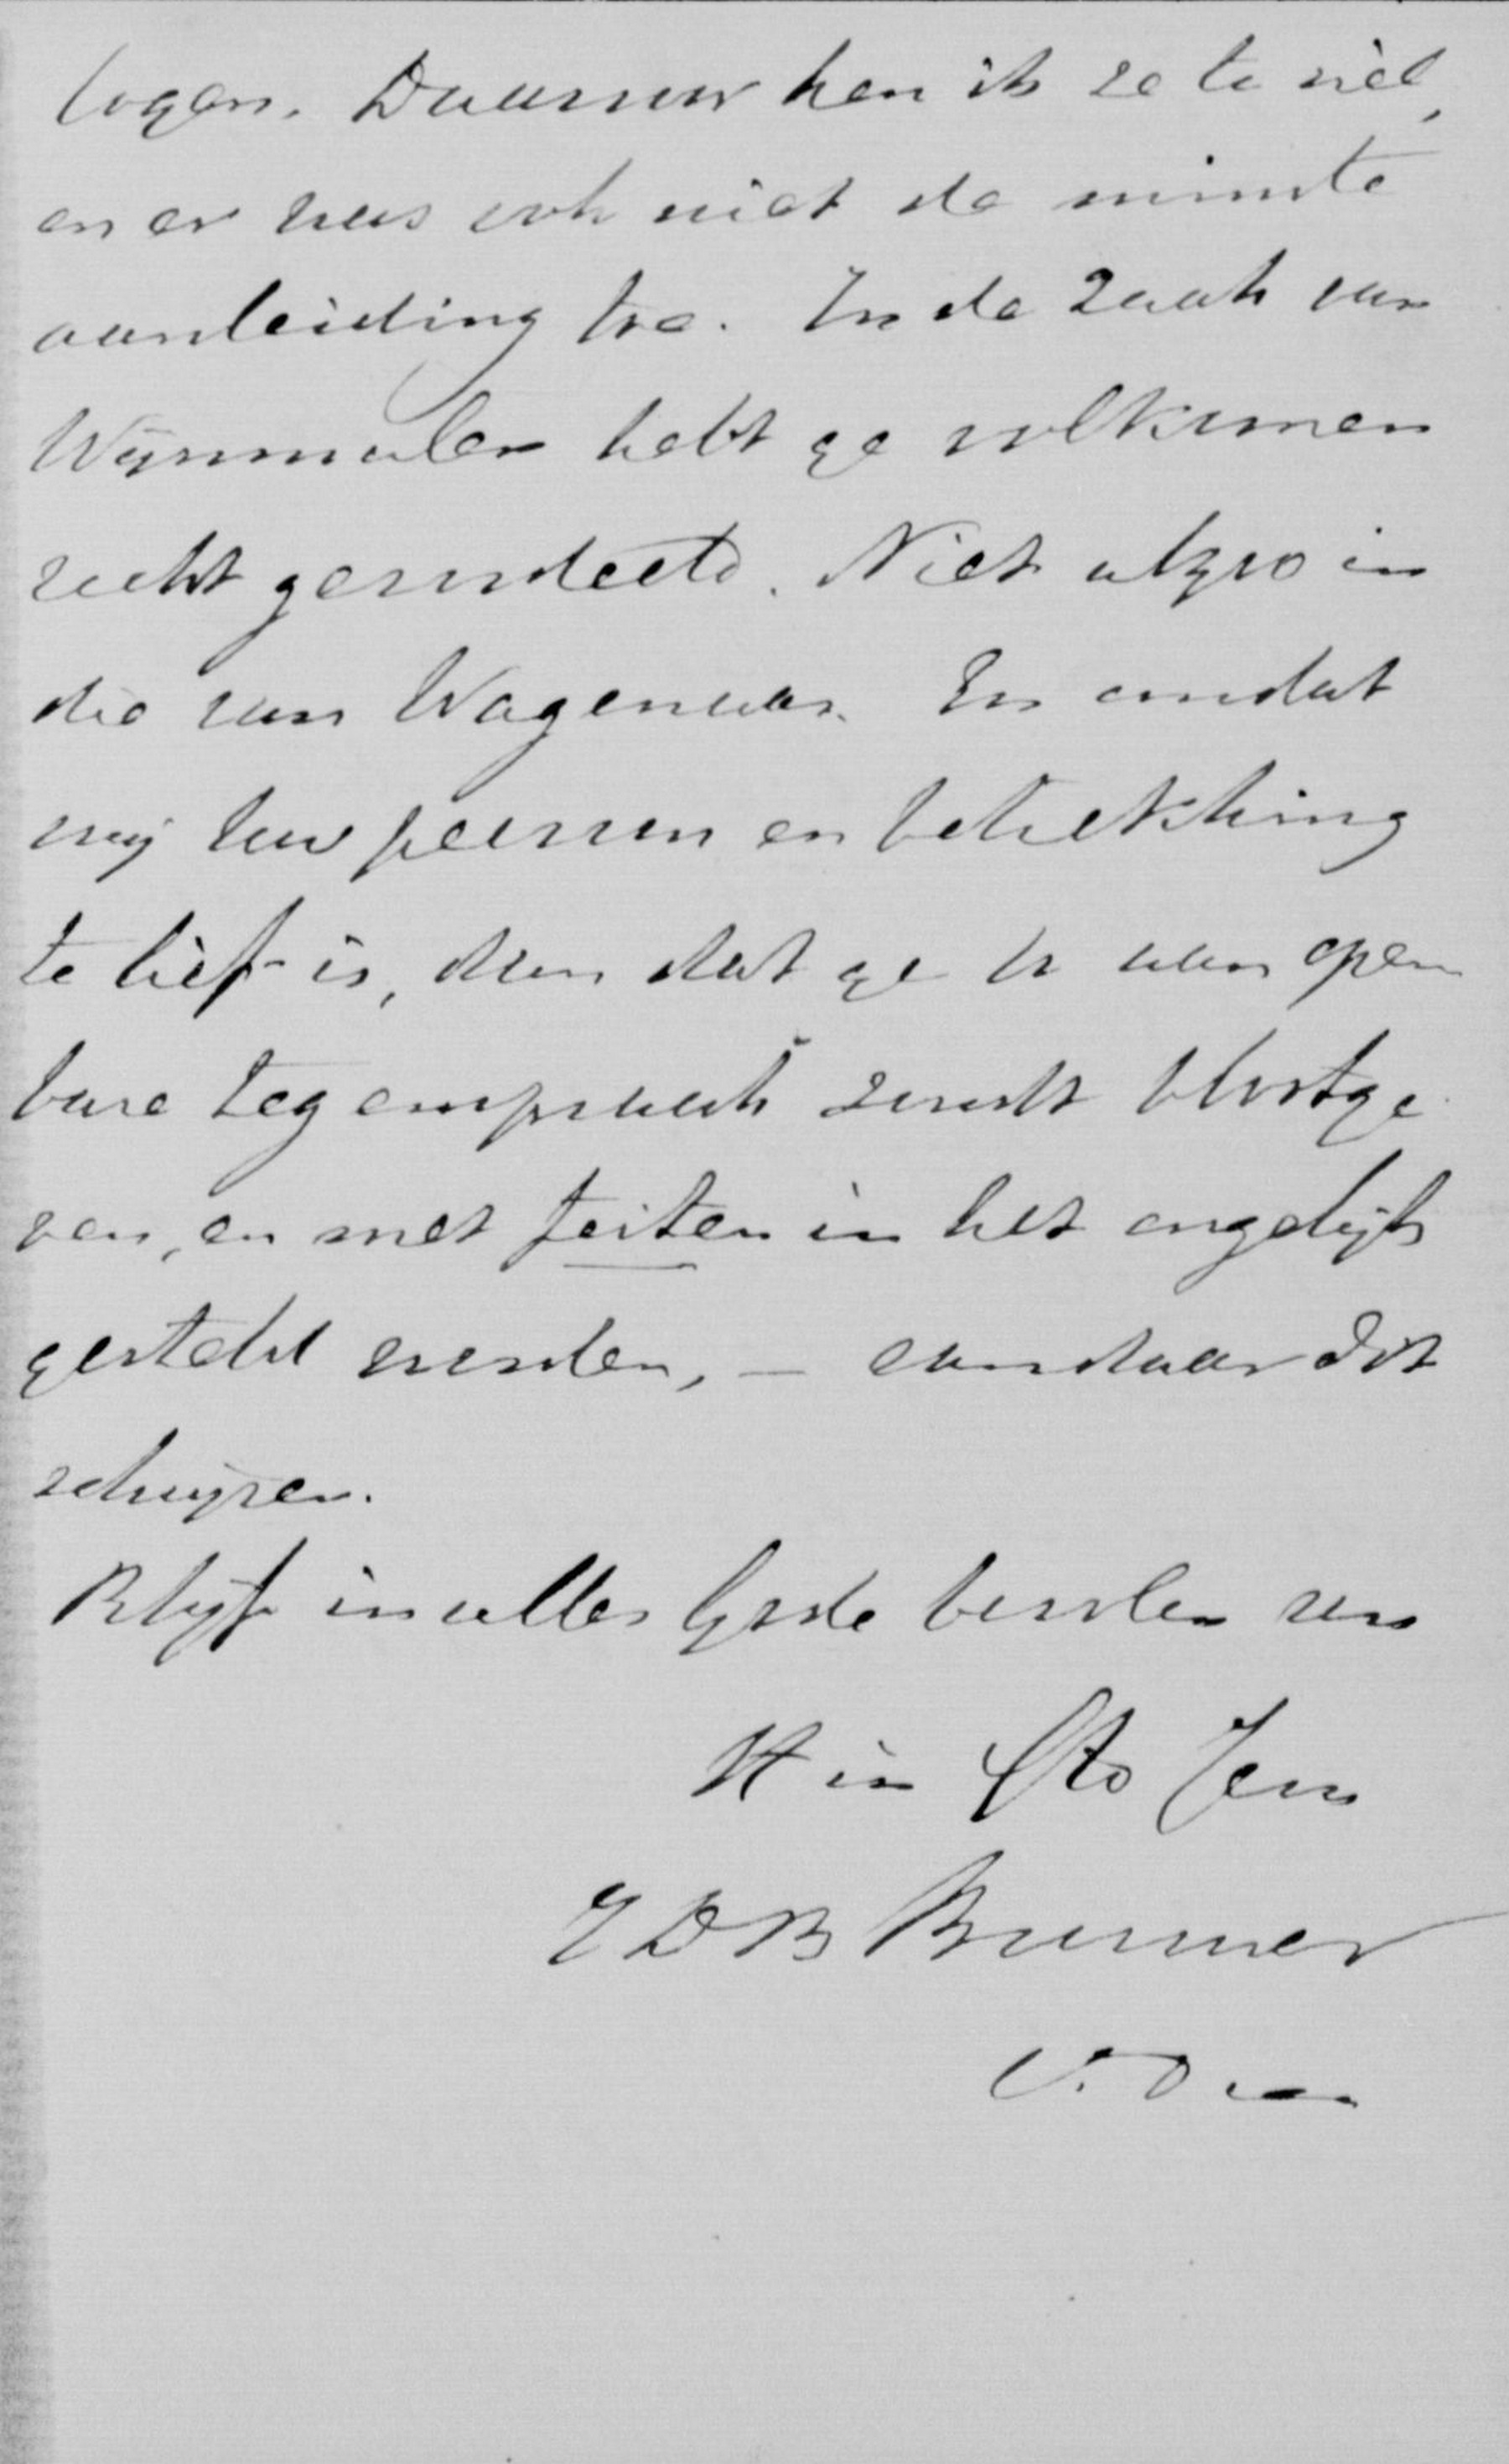 logen. Daarvoor ken ik ze te viel,
en er was ook niet de minste
aanleiding toe. In de zaak van
Wijnmalen hebt ge volkomen
recht geoordeeld. Niet alzoo in
die van Wagenaar. En omdat
mij uw persoon en betrekking
te lief is, dan dat ge U aan open
bare tegenspraak zoudt blootge
ven, en met feiten in het ongelijk
gesteld worden, – vandaar dit
schrijven.
Blijf in alles Gode bevolen van
Uw in Cto Jesu
JDB Brouwer
V. D. m.